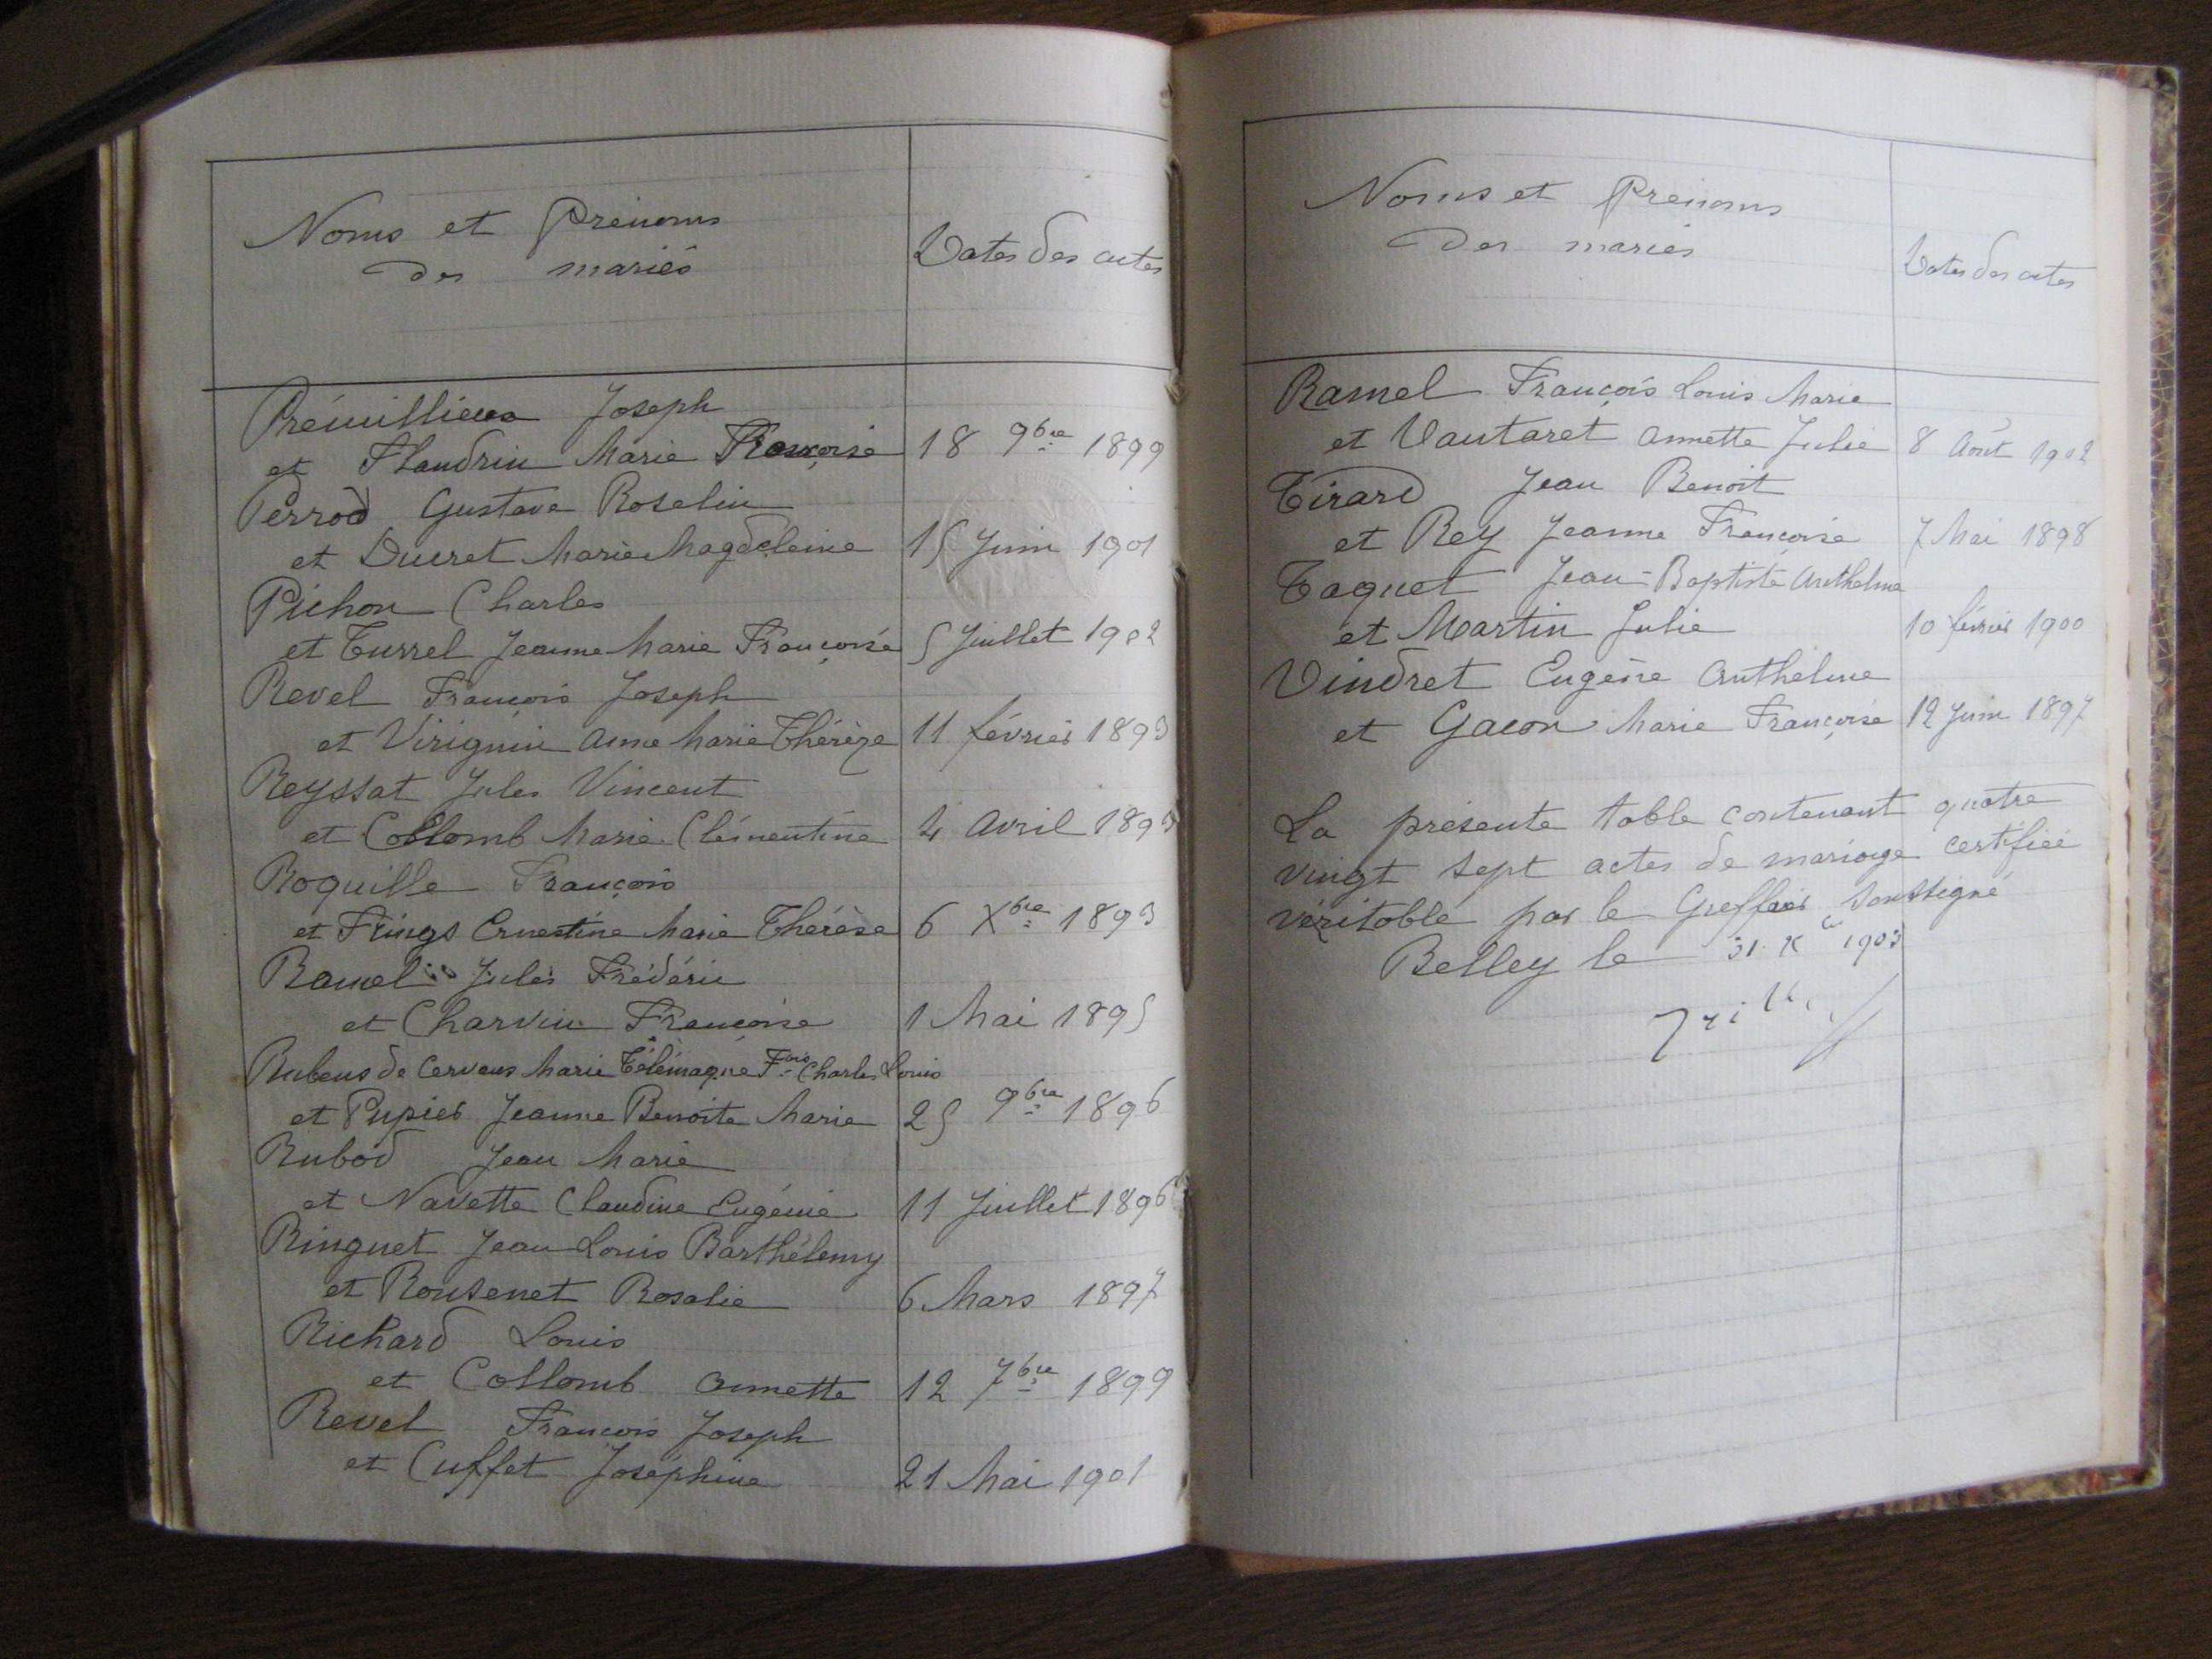 Noms et Prénoms
des mariés
Dates des actes
Prémillieu Joseph
et Flandrin Marie Françoise 18 9bre 1899
Perrod Gustave Roselin
et Ducret Marie Magdeleine 15 Juin 1901
Pichon Charles
et Turrel Jeanne Marie Françoise 5 Juillet 1902
Revel François Joseph
et Virignin Anne Marie Thérèze 11 février 1893
Reyssat Jules Vincent
et Collomb Marie Clémentine 4 Avril 1893
Roquille François
et Frings Ernestine Marie Thérèse 6 Xbre 1893
Ramel Jules Frédéric
et Charvin Françoise 1 Mai 1895
Rubens de Cervens Marie Télémaque Fois Charles Louis
et Pupier Jeanne Benoite Marie 25 9bre 1896
Rubod Jean Marie
et Navette Claudine Eugénie 11 Juillet 1896
Ringuet Jean Louis Barthélemy
et Rousenet Rosalie 6 Mars 1897
Richard Louis
et Collomb Annette 12 7bre 1899
Revel François Joseph
et Cuffet Joséphine 21 Mai 1901
Noms et Prénoms
des mariés
Dates des actes
Ramel François Louis Marie
et Vautaret Annette Julie 8 Août 1902
Tirard Jean Benoit
et Rey Jeanne Françoise 7 Mai 1898
Taquet Jean-Baptiste Anthelme
et Martin Julie 10 février 1900
Vindret Eugène Anthelme
et Gacon Marie Françoise 12 Juin 1897
La présente table contenant quatre
vingt sept actes de mariage certifiée
véritable par le Greffier soussigné
Belley le 31 Xe 1903